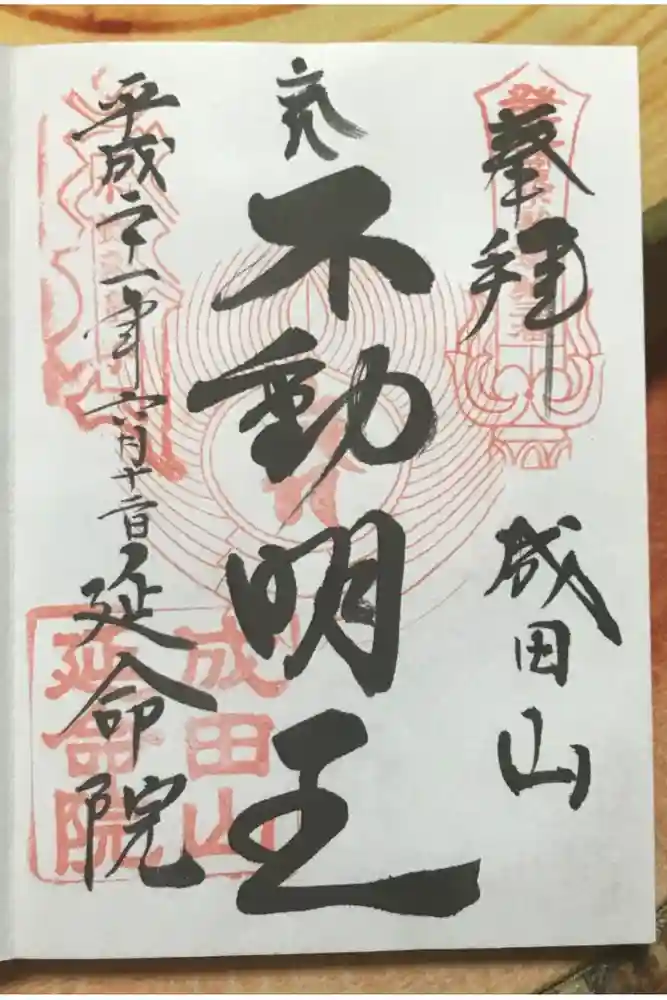 奉拝 成田山
不動明王
平成二十一年六月十二日 延命院
成田山
延命院